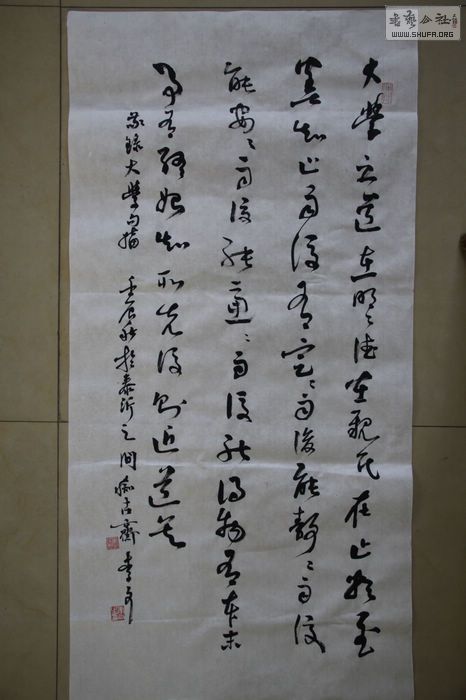 書藝公社
WWW.SHUFA.ORG
大學之道在明々德在親民在止於至
善知止而後有定々而後能靜々而後
能安々而後能慮々而後能得物有本末
事有終始知所先後則近道矣
敬錄大學句摘 壬辰秋於泰沂之間痴古齋李